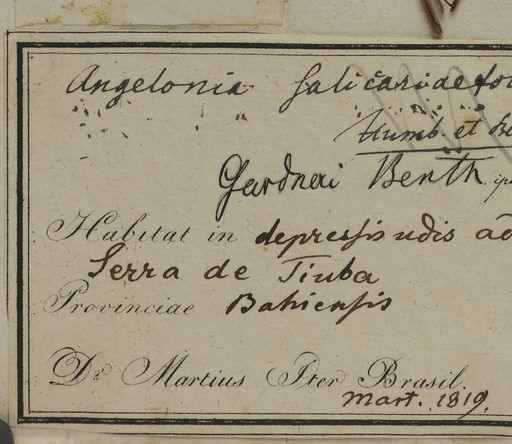 Angelonia salicariaefol
Humb et
Gardneri Benth.
Habitat in depressis udis ad
Serra de Tiuba
Provinciae Bahiensis
Dr. Martius Iter Brasil.
Mart. 1819.